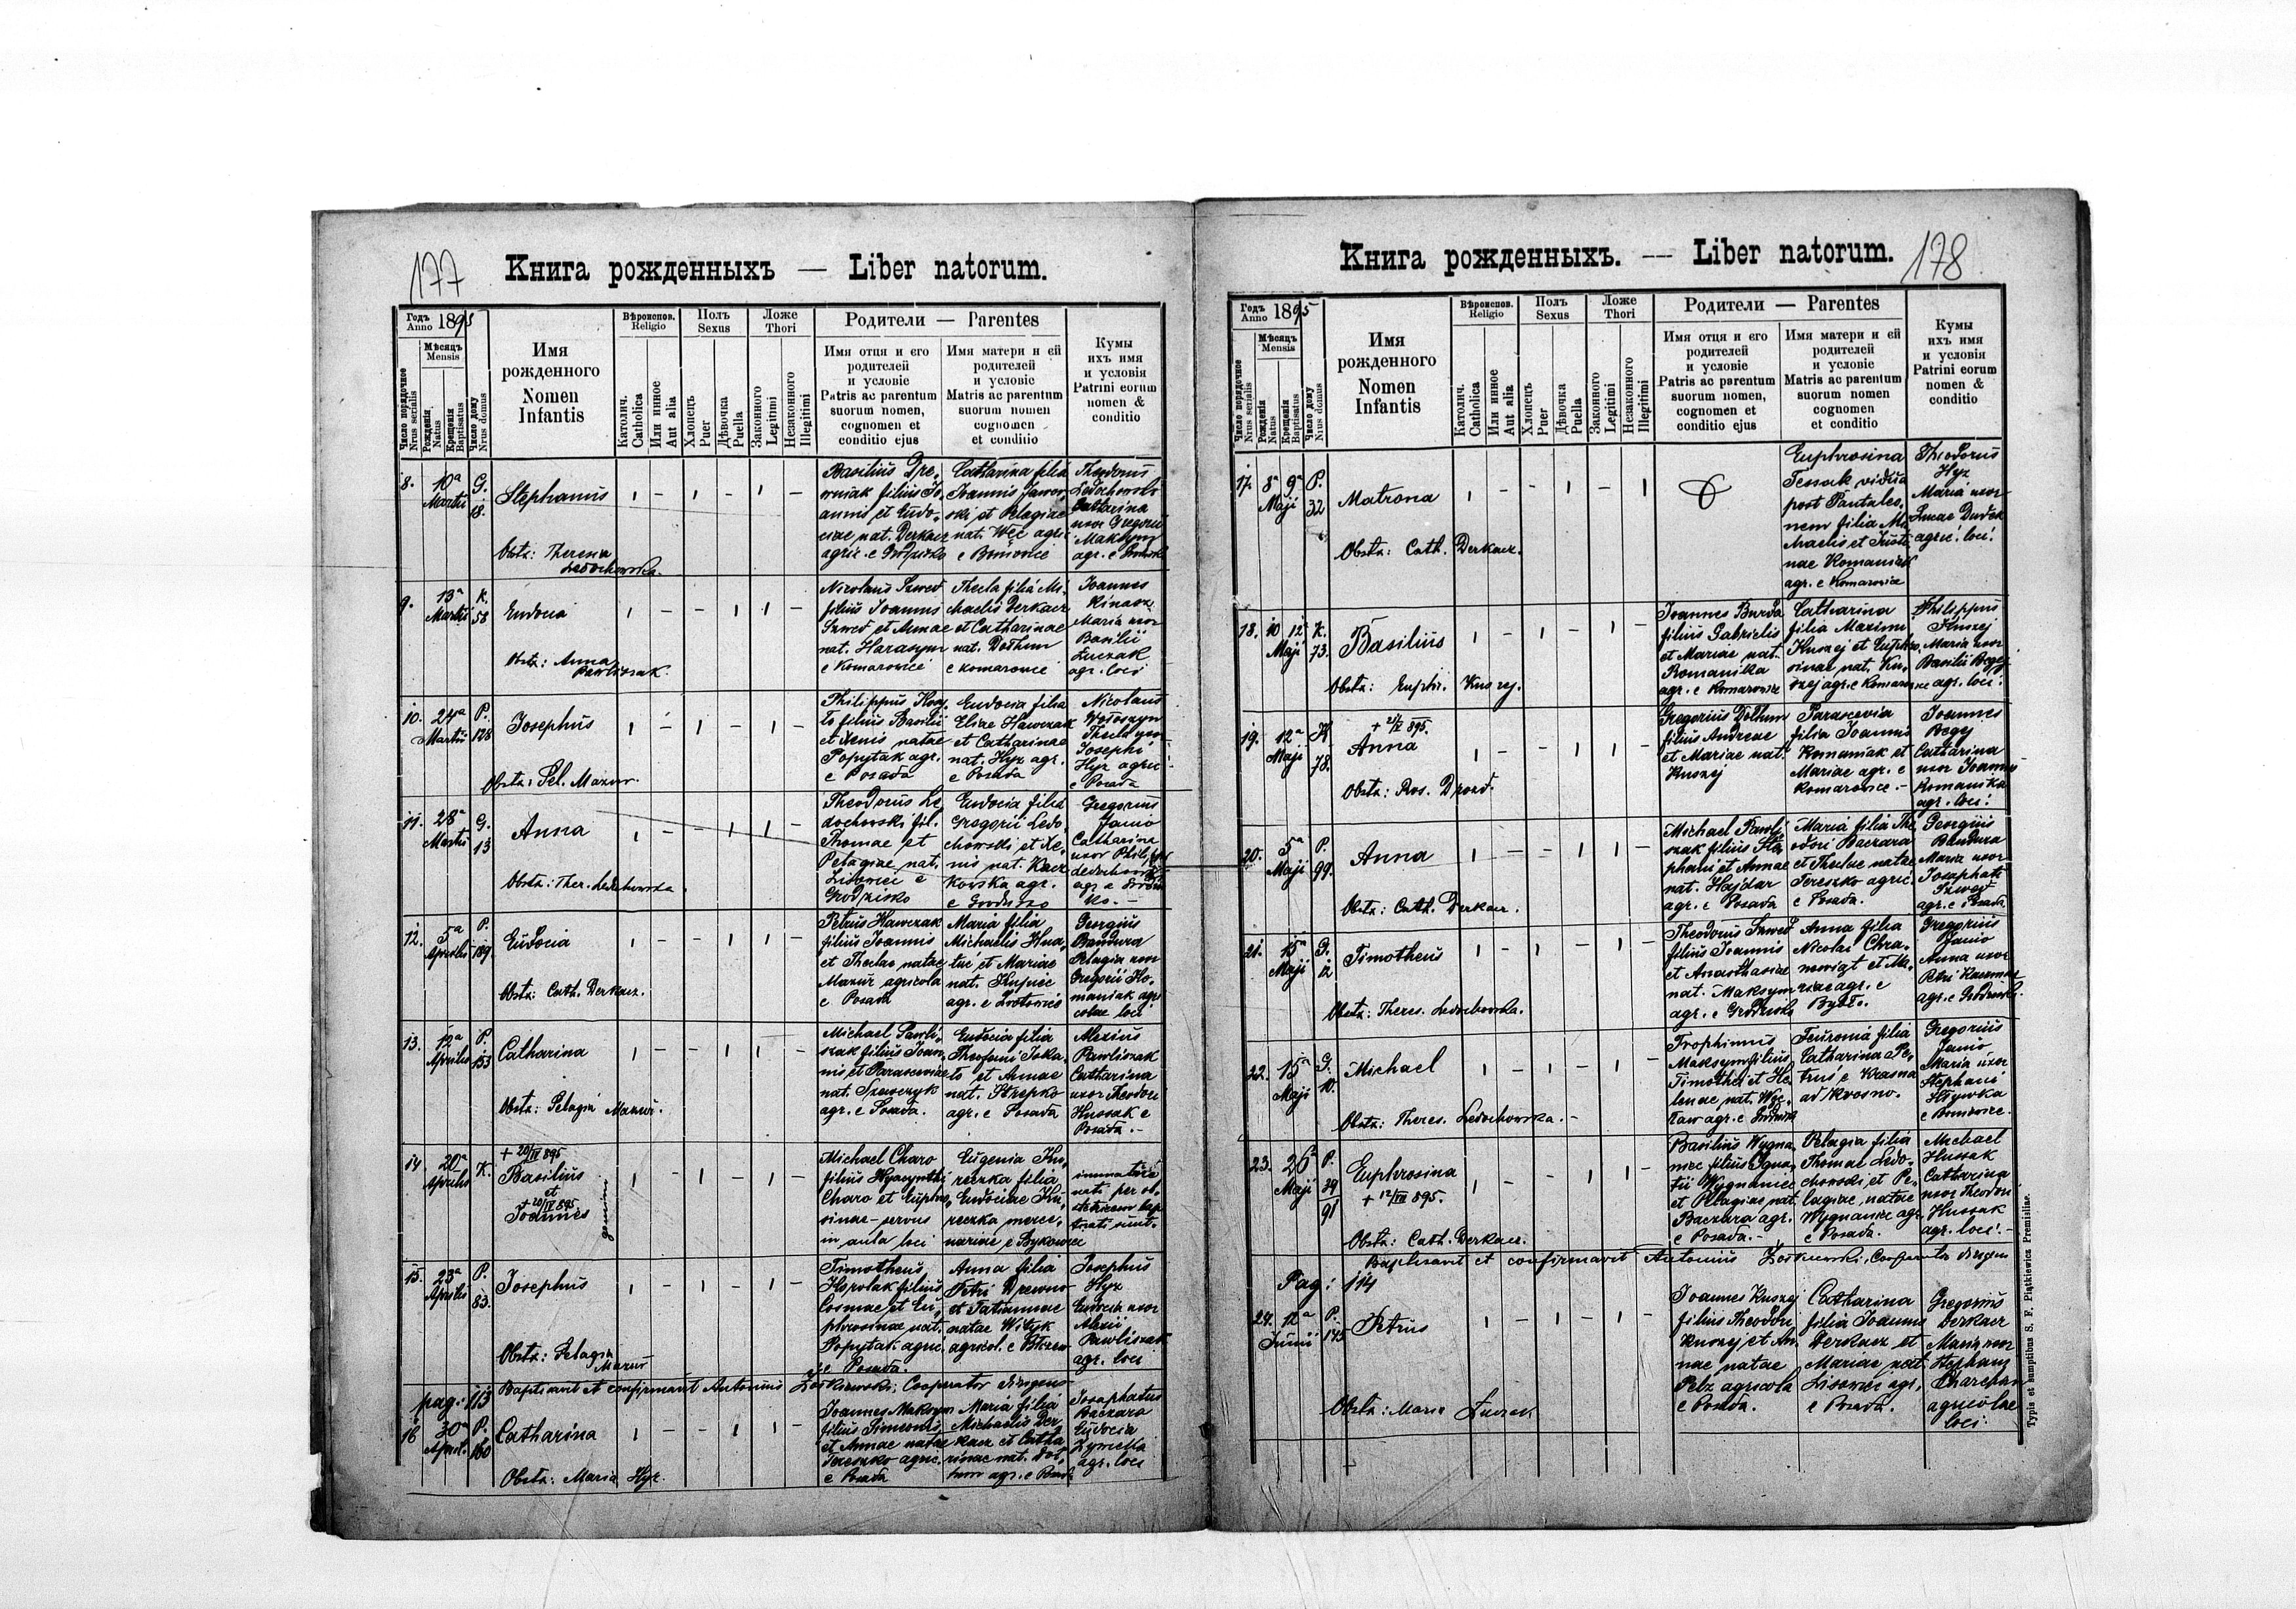 177
Книга рожденныхъ — Liber natorum.
Годъ
Anno 1895
Мѣсяцъ
Mensis
Число порядочное
Nrus serialis
Рожденія
Natus
Крещенія
Baptisatus
Число дому
Nrus domus
Имя
рожденного
Nomen
Infantis
Вѣроиспов.
Religio
Католич.
Catholica
Или инное
Aut alia
Полъ
Sexus
Хлопецъ
Puer
Дѣвочка
Puella
Ложе
Thori
Законного
Legitimi
Незаконного
Illegitimi
Родители — Parentes
Имя отця и его
родителей
и условіе
Patris ac parentum
suorum nomen,
cognomen et
conditio ejus
Имя матери и ей
родителей
и условіе
Matris ac parentum
suorum nomen
cognomen
et conditio
Кумы
ихъ имя
и условія
Patrini eorum
nomen &
conditio
8. 10a Martii G. 18.
Stephanus
Obstx: Theresia
Ledochowska.
Catharina filia
Joannis Jawor-
ski et Pelagiae
Theodorus
Ledochowski
Catharina
uxor Gregorii
Maksym
9. 13a Martii K. 58
Eudocia
Obstx: Anna
Pawliszak.
Nicolaus Szwed
filius Joannis
Szwed et Annae
nat. Harasym
e Komarowice
Thecla filia Mi-
chaelis Derkacz
et Catharinae
nat. Dołhun
e Komarowice
Joannes
Maria uxor
Basilii
Łuczak
agr. loci
10. 24a Martii P. 128
Josephus
Obstx: Pel. Mazur.
filius Basilii
et Xenis natae
Popytak agr.
e Posada
Eudocia filia
Eliae Hawczak
et Catharinae
nat. Hyz agr.
e Posada
Nicolaus
Wołoszyn
Thecla uxor
Josephi
Hyz agric.
e Posada
11. 28a Martii G. 13
Anna
Obstx: Ther. Ledochowska.
Theodorus Le-
dochowski fil.
Thomae et
Pelagiae nat.
Lisowice e
Grodzisko
Eudocia filia
Gregorii Ledo-
chowski et Xe-
nis nat. Kacz-
kowska agr.
e Grodzisko
Gregorius
Janio
Catharina
uxor Philippi
Ledochowski
12. 5a Aprilis P. 189
Eudocia
Obstx: Cath. Derkacz.
Petrus Hawczak
filius Joannis
et Theclae natae
Mazur agricola
e Posada
Maria filia
et Mariae
nat. Krupiec
Georgius
Bandura
Pelagia uxor
Gregorii Ro-
maniak agri-
colae loci
13. 12a Aprilis P. 153
Catharina
Obstx: Pelagia Mazur.
Michael Pawli-
szak filius Joan-
nis et Parasceviae
nat. Szewczyk
agr. e Posada.
Eudocia filia
et Annae
agr. e Posada
Alexius
Pawliszak
Catharina
uxor Theodori
Hussak e
Posada.-
14. 20a Aprilis K.
+ 20/IV 895
Basilius
et
+ 20/IV 895
Joannes
gemini
Michael Charo
filius Hyacynthi
Charo et Euphro-
sinae - servus
in aula loci
filia
Eudociae
e Bykowce
immature
nati per ob-
stetricem bap-
tisati sunt.
15. 23a Aprilis P. 83.
Josephus
Obstx: Pelagia
Mazur
Timotheus
Korolak filius
Cosmae et Eu-
phrosinae nat.
Popytak agric.
e Posada.
Anna filia
Petri
et Tatiannae
natae Wityk
Josephus
Hyz
Eudocia uxor
Alexii
Pawliszak
agr. loci
pag: 113 Baptisavit et confirmavit Antonius Cooperator dirigens
16 30a April. P. 160
Catharina
Obstx: Maria Hyz.
Joannes Maksym
filius Simeonis
et Annae natae
Tereszko agric.
e Posada
Maria filia
Michaelis Der-
kacz et Catha-
rinae nat. Doł-
Josaphatus
Baczara
Eudocia
agr. loci
178
Книга рожденныхъ. — Liber natorum.
Годъ
Anno 1895
Мѣсяцъ
Mensis
Число порядочное
Nrus serialis
Рожденія
Natus
Крещенія
Baptisatus
Число дому
Nrus domus
Имя
рожденного
Nomen
Infantis
Вѣроиспов.
Religio
Католич.
Catholica
Или инное
Aut alia
Полъ
Sexus
Хлопецъ
Puer
Дѣвочка
Puella
Ложе
Thori
Законного
Legitimi
Незаконного
Illegitimi
Родители — Parentes
Имя отця и его
родителей
и условіе
Patris ac parentum
suorum nomen,
cognomen et
conditio ejus
Имя матери и ей
родителей
и условіе
Matris ac parentum
suorum nomen
cognomen
et conditio
Кумы
ихъ имя
и условія
Patrini eorum
nomen &
conditio
17. 8a 9a Maji P. 32
Matrona
Obstx: Cath. Derkacz.
Euphrosina
Tessak vidua
post Pantaleo-
nem filia Mi-
chaelis et Justi-
nae Romaniak
agr. e Komarowice
Theodorus
Hyz
Maria uxor
Lucae Dudek
agric. loci.
18. 10 12a Maji K. 73.
Basilius
Obstx: Euphr. Kuszej.
Joannes Burda
filius Gabrielis
et Mariae nat.
Romanika
agr. e Komarowice
Catharina
filia Maximi
Kuszej et Euphro-
sinae nat. Ku-
szej agr. e Komarowice
Philippus
Kuszej
Maria uxor
Basilii Begej
agr. loci.
19. 12a Maji K. 78.
Anna
Obstx: Ros. Drozd.
Gregorius Dołhun
filius Andreae
et Mariae nat.
Kuszej
Parascevia
filia Joannis
Romaniak et
Mariae agr. e
Komarowice.-
Joannes
Begej
Catharina
uxor Joannis
Romanika
agr. loci.
20. 5a Maji P. 99.
Anna
Obstx: Cath. Derkacz.
Michael Pawli-
szak filius Ste-
phani et Annae
nat. Hajdar
agr. e Posada
Maria filia The-
odori Baczara
et Theclae natae
Tereszko agric.
e Posada.
Georgius
Bandura
Maria uxor
Josaphati
Szwed
agr. e Posada.
21. 15a Maji G. 12
Timotheus
Obstx: Theres. Ledochowska.
Theodorus Szwed
filius Joannis
et Anasthasiae
nat. Maksym
agr. e Grodzisko
Anna filia
Nicolai
et Ma-
riae agr. e
Gregorius
Janio
Anna uxor
Petri
22. 15a Maji G. 10.
Michael
Obstx: Theres. Ledochowska.-
Trophimus
Maksym filius
Timothei et He-
lenae nat.
filia
Catharina Pe-
truś e Krasna
ad Krosno.
Gregorius
Janio
Maria uxor
Stephani
23. 26a Maji P. 39/91
Euphrosina
+ 12/VII 895.
Obstx: Cath. Derkacz.
Basilius Wygna-
niec filius Igna-
tii Wygnaniec
et Pelagiae nat.
Baczara agr.
e Posada.-
Pelagia filia
Thomae Ledo-
chowski et Pe-
lagiae natae
Wygnaniec agr.
e Posada.
Michael
Hussak
Catharina
uxor Theodori
Hussak
agr. loci.-
Baptisavit et confirmavit Antonius Cooperator dirigens
Pag: 114
24. 12a Junii P. 145
Petrus
Obstx: Maria Łuczak
Joannes Kuszej
filius Theodori
Kuszej et An-
nae natae
Pelz agricola
e Posada.
Catharina
filia Joannis
Derkacz et
Mariae nat.
Lisowice agr.
e Posada.
Gregorius
Derkacz
Maria uxor
Stephani
agricolae
loci.
Typis et sumptibus S. F. Piątkiewicz Premisliae.